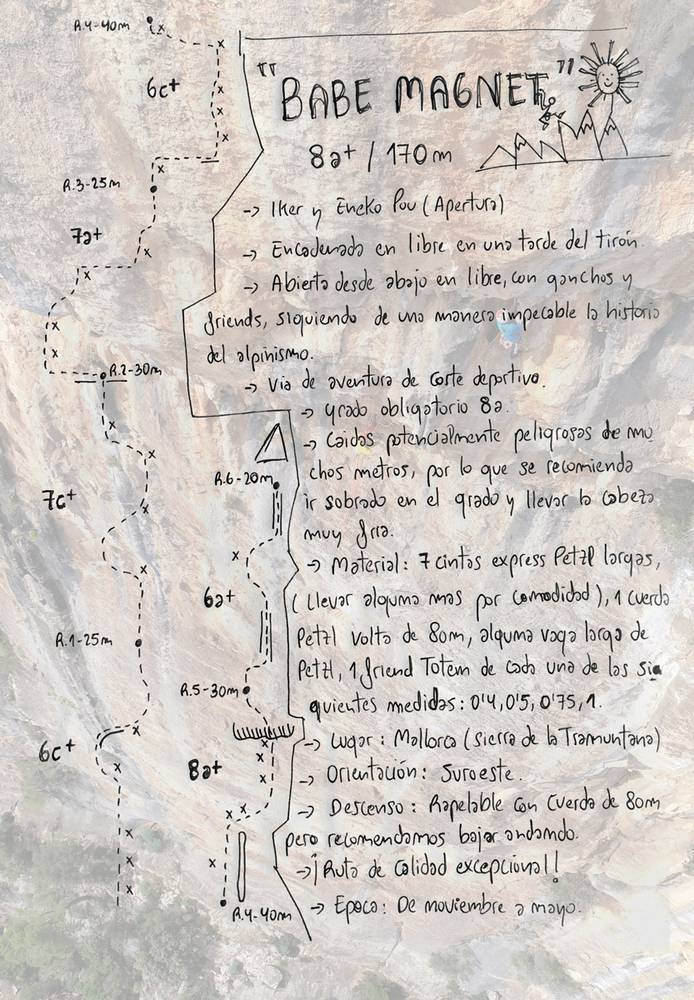 R.4-40m
6c+
R.3-25m
7a+
R.2-30m
7c+
R.1-25m
6c+
R.6-20m
6a+
R.5-30m
8a+
R.4-40m
"BABE MAGNET"
8a+ / 170m
-> Iker y Eneko Pou (Apertura)
-> Encadenada en libre en una tarde del tirón.
-> Abierta desde abajo en libre, con ganchos y
friends, siguiendo de una manera impecable la historia
del alpinismo.
-> Via de aventura de corte deportivo.
-> grado obligatorio 8a.
-> Caidas potencialmente peligrosas de mu
chos metros, por lo que se recomienda
ir sobrado en el grado y llevar la cabeza
muy fria.
-> Material: 7 cintas express Petzl largas,
(llevar alguna mas por comodidad), 1 cuerda
Petzl Volta de 80m, alguna vaga larga de
Petzl, 1 friend Totem de cada una de las si
guientes medidas: 0'4, 0'5, 0'75, 1.
-> Lugar: Mallorca (Sierra de la Tramuntana)
-> Orientación: Suroeste.
-> Descenso: Rapelable con Cuerda de 80m
pero recomendamos bajar andando.
-> ¡Ruta de calidad excepcional!
-> Epoca: De noviembre a mayo.